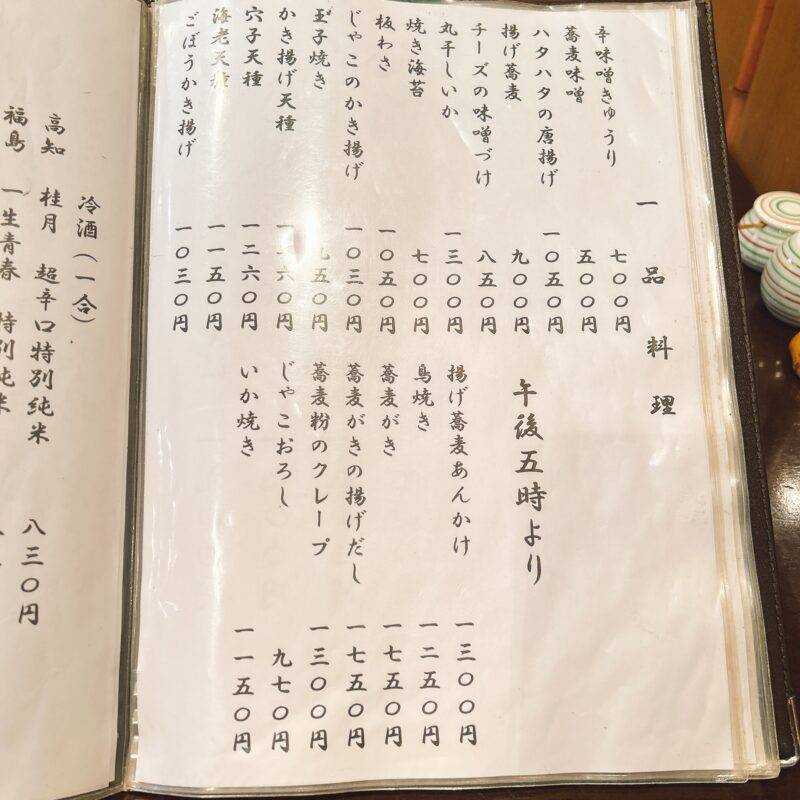 一品料理
辛味噌きゅうり 七〇〇円
蕎麦味噌 五〇〇円
ハタハタの唐揚げ 一〇五〇円
揚げ蕎麦 九〇〇円
チーズの味噌づけ 八五〇円
丸干しいか 一三〇〇円
焼き海苔 七〇〇円
板わさ 一〇五〇円
じゃこのかき揚げ 一〇三〇円
玉子焼き 九五〇円
かき揚げ天種
穴子天種 一二六〇円
海老天種 一一五〇円
ごぼうかき揚げ 一〇三〇円
午後五時より
揚げ蕎麦あんかけ 一三〇〇円
鳥焼き 一二五〇円
蕎麦がき 一七五〇円
蕎麦がきの揚げだし 一七五〇円
蕎麦粉のクレープ 一三〇〇円
じゃこおろし 九七〇円
いか焼き 一一五〇円
冷酒（一合）
高知 桂月 超辛口特別純米 八三〇円
福島 一生青春 特別純米